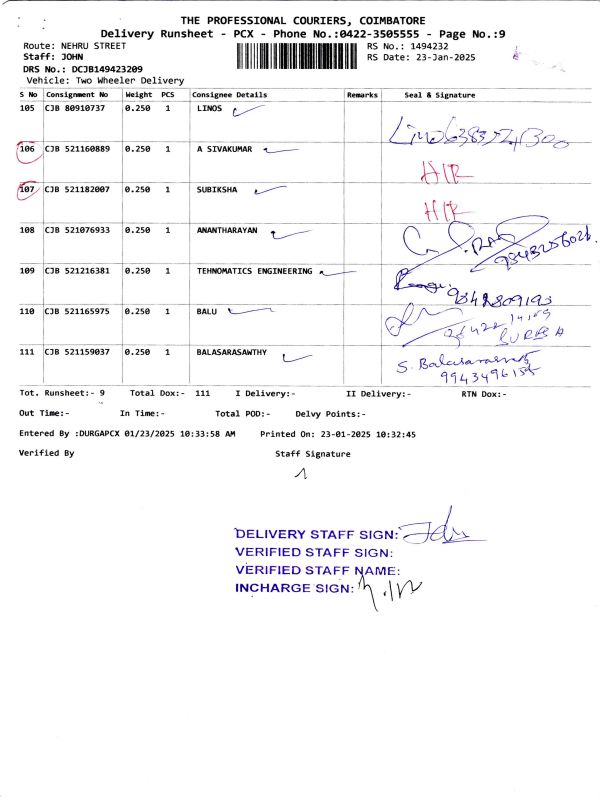 THE PROFESSIONAL COURIERS, COIMBATORE
Delivery Runsheet - PCX - Phone No.:0422-3505555 - Page No.:9
Route: NEHRU STREET RS No.: 1494232
Staff: JOHN RS Date: 23-Jan-2025
DRS No.: DCJB149423209
Vehicle: Two Wheeler Delivery
S No Consignment No Weight PCS Consignee Details Remarks Seal & Signature
105 CJB 80910737 0.250 1 LINOS
106 CJB 521160889 0.250 1 A SIVAKUMAR H/R
107 CJB 521182007 0.250 1 SUBIKSHA H/R
108 CJB 521076933 0.250 1 ANANTHARAYAN
109 CJB 521216381 0.250 1 TEHNOMATICS ENGINEERING 9842809193
110 CJB 521165975 0.250 1 BALU
111 CJB 521159037 0.250 1 BALASARASAWTHY S. Balasaraswathy
Tot. Runsheet:- 9 Total Dox:- 111 I Delivery:- II Delivery:- RTN Dox:-
Out Time:- In Time:- Total POD:- Delvy Points:-
Entered By :DURGAPCX 01/23/2025 10:33:58 AM Printed On: 23-01-2025 10:32:45
Verified By Staff Signature
DELIVERY STAFF SIGN:
VERIFIED STAFF SIGN:
VERIFIED STAFF NAME:
INCHARGE SIGN: